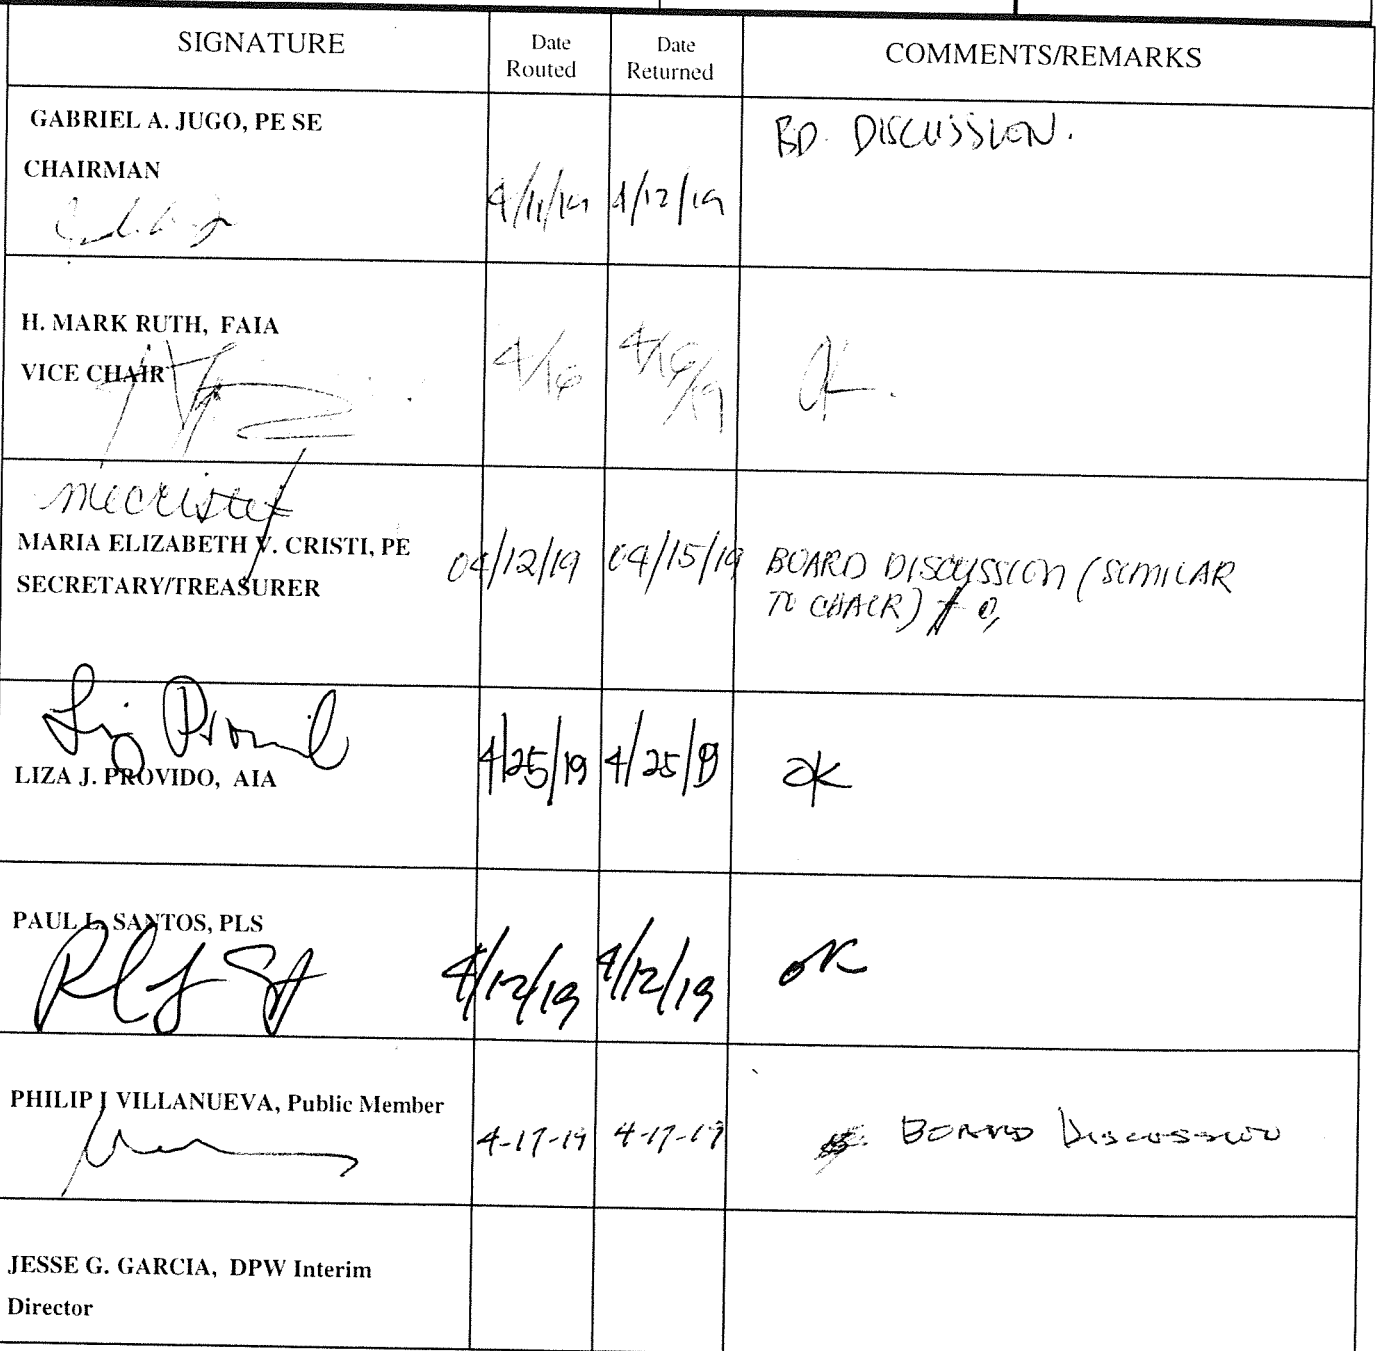 SIGNATURE
Date
Routed
Date
Returned
COMMENTS/REMARKS
GABRIEL A. JUGO, PE SE
CHAIRMAN
4/11/19
4/12/19
BD. DISCUSSION.
H. MARK RUTH, FAIA
VICE CHAIR
4/16
4/16
/19
OK.
MARIA ELIZABETH V. CRISTI, PE
SECRETARY/TREASURER
04/12/19
04/15/19
BOARD DISCUSSION (SIMILAR
TO CHAIR)
Liz Provid
LIZA J. PROVIDO, AIA
4/25/19
4/25/19
OK
PAUL L. SANTOS, PLS
4/12/19
4/12/19
OK
PHILIP J VILLANUEVA, Public Member
4-17-19
4-17-19
BOARD DISCUSSION
JESSE G. GARCIA, DPW Interim
Director